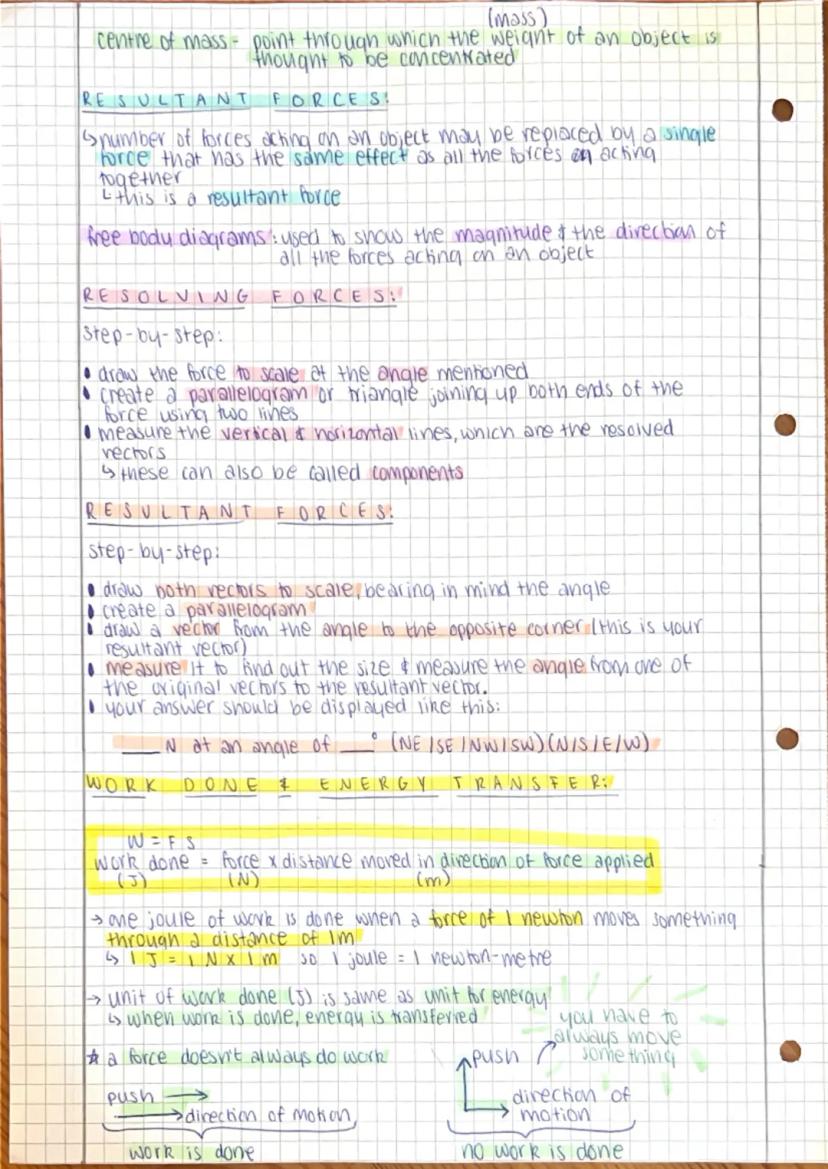 (mass)
centre of mass - point through which the weight of an object is
thought to be concentrated
RESULTANT FORCES:
↳ number of forces acting on an object may be replaced by a single
force that has the same effect as all the forces acting
together
↳ this is a resultant force
free body diagrams: used to show the magnitude & the direction of
all the forces acting on an object
RESOLVING FORCES:
step-by-step:
• draw the force to scale at the angle mentioned
• create a parallelogram or triangle joining up both ends of the
force using two lines
• measure the vertical & horizontal lines, which are the resolved
vectors
↳ these can also be called components
RESULTANT FORCES:
step-by-step:
• draw both vectors to scale, bearing in mind the angle
• create a parallelogram
• draw a vector from the angle to the opposite corner (this is your
resultant vector)
• measure it to find out the size & measure the angle from one of
the original vectors to the resultant vector.
• your answer should be displayed like this:
___ N at an angle of ___° (NE/SE/NW/SW)(N/S/E/W)
WORK DONE & ENERGY TRANSFER:
W = F s
work done = force x distance moved in direction of force applied
(J) (N) (m)
→ one joule of work is done when a force of 1 newton moves something
through a distance of 1m
↳ 1 J = 1 N x 1 m so 1 joule = 1 newton-metre
→ unit of work done (J) is same as unit for energy
↳ when work is done, energy is transferred
you have to
always move
something
☆ a force doesn't always do work
push →
→ direction of motion
work is done
push
direction of
motion
no work is done